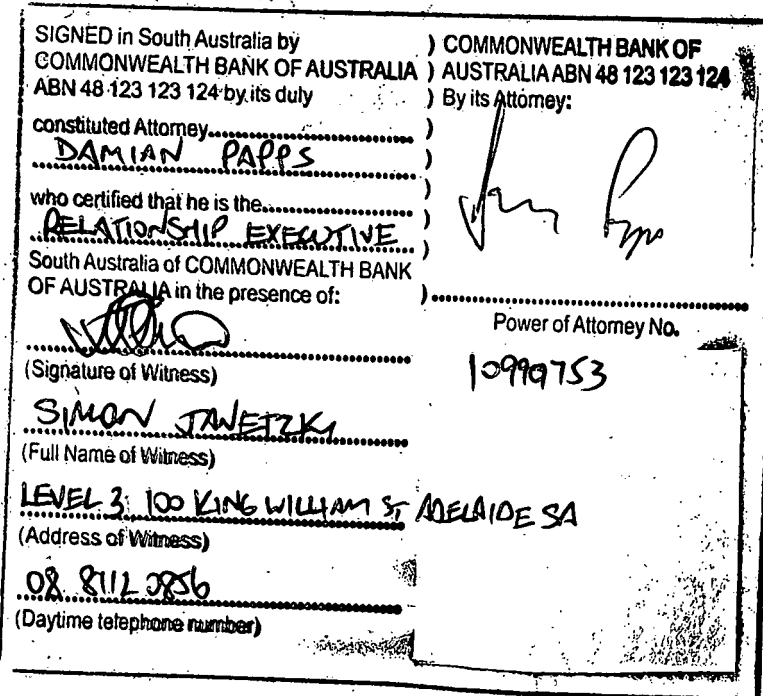 SIGNED in South Australia by
COMMONWEALTH BANK OF AUSTRALIA
ABN 48 123 123 124 by its duly
constituted Attorney
DAMIAN PAPPS
who certified that he is the
RELATIONSHIP EXECUTIVE
South Australia of COMMONWEALTH BANK
OF AUSTRALIA in the presence of:
(Signature of Witness)
SIMON JANETZKI
(Full Name of Witness)
LEVEL 3, 100 KING WILLIAM ST, ADELAIDE SA
(Address of Witness)
08 8112 0856
(Daytime telephone number)
) COMMONWEALTH BANK OF
) AUSTRALIA ABN 48 123 123 124
) By its Attorney:
)
)
)
)
)
Power of Attorney No.
10990753